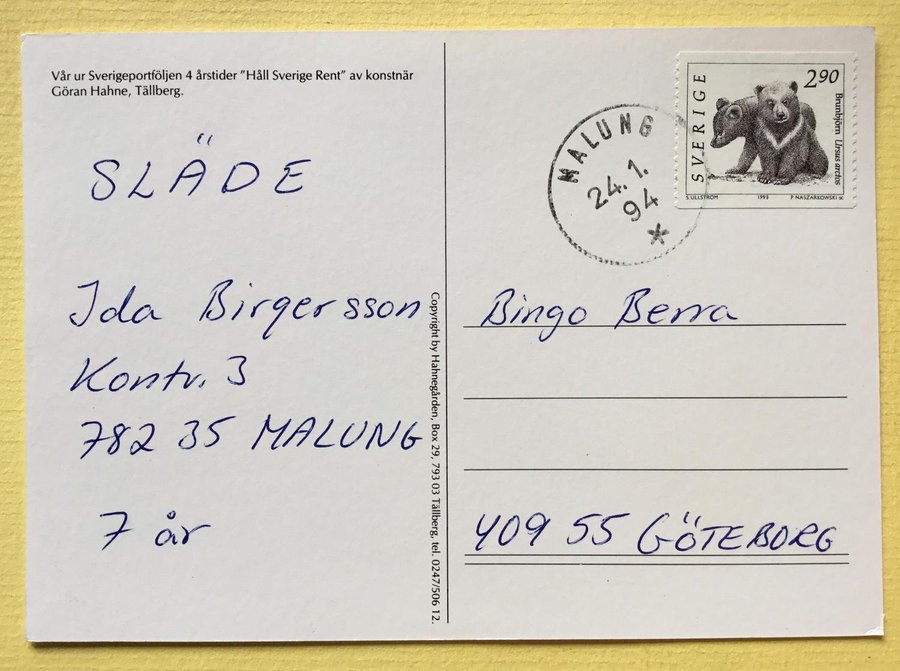 Vår ur Sverigeportföljen 4 årstider "Håll Sverige Rent" av konstnär
Göran Hahne, Tällberg.
SLÄDE
Ida Birgersson
Kontv. 3
782 35 MALUNG
7 år
Copyright by Hahnegården, Box 29, 793 03 Tällberg, tel. 0247/506 12.
MALUNG
24.1.
94
*
SVERIGE
2.90
Brunbjörn Ursus arctos
S ULLSTRÖM 1993 P NASZARKOWSKI sc
Bingo Berra
409 55 GÖTEBORG